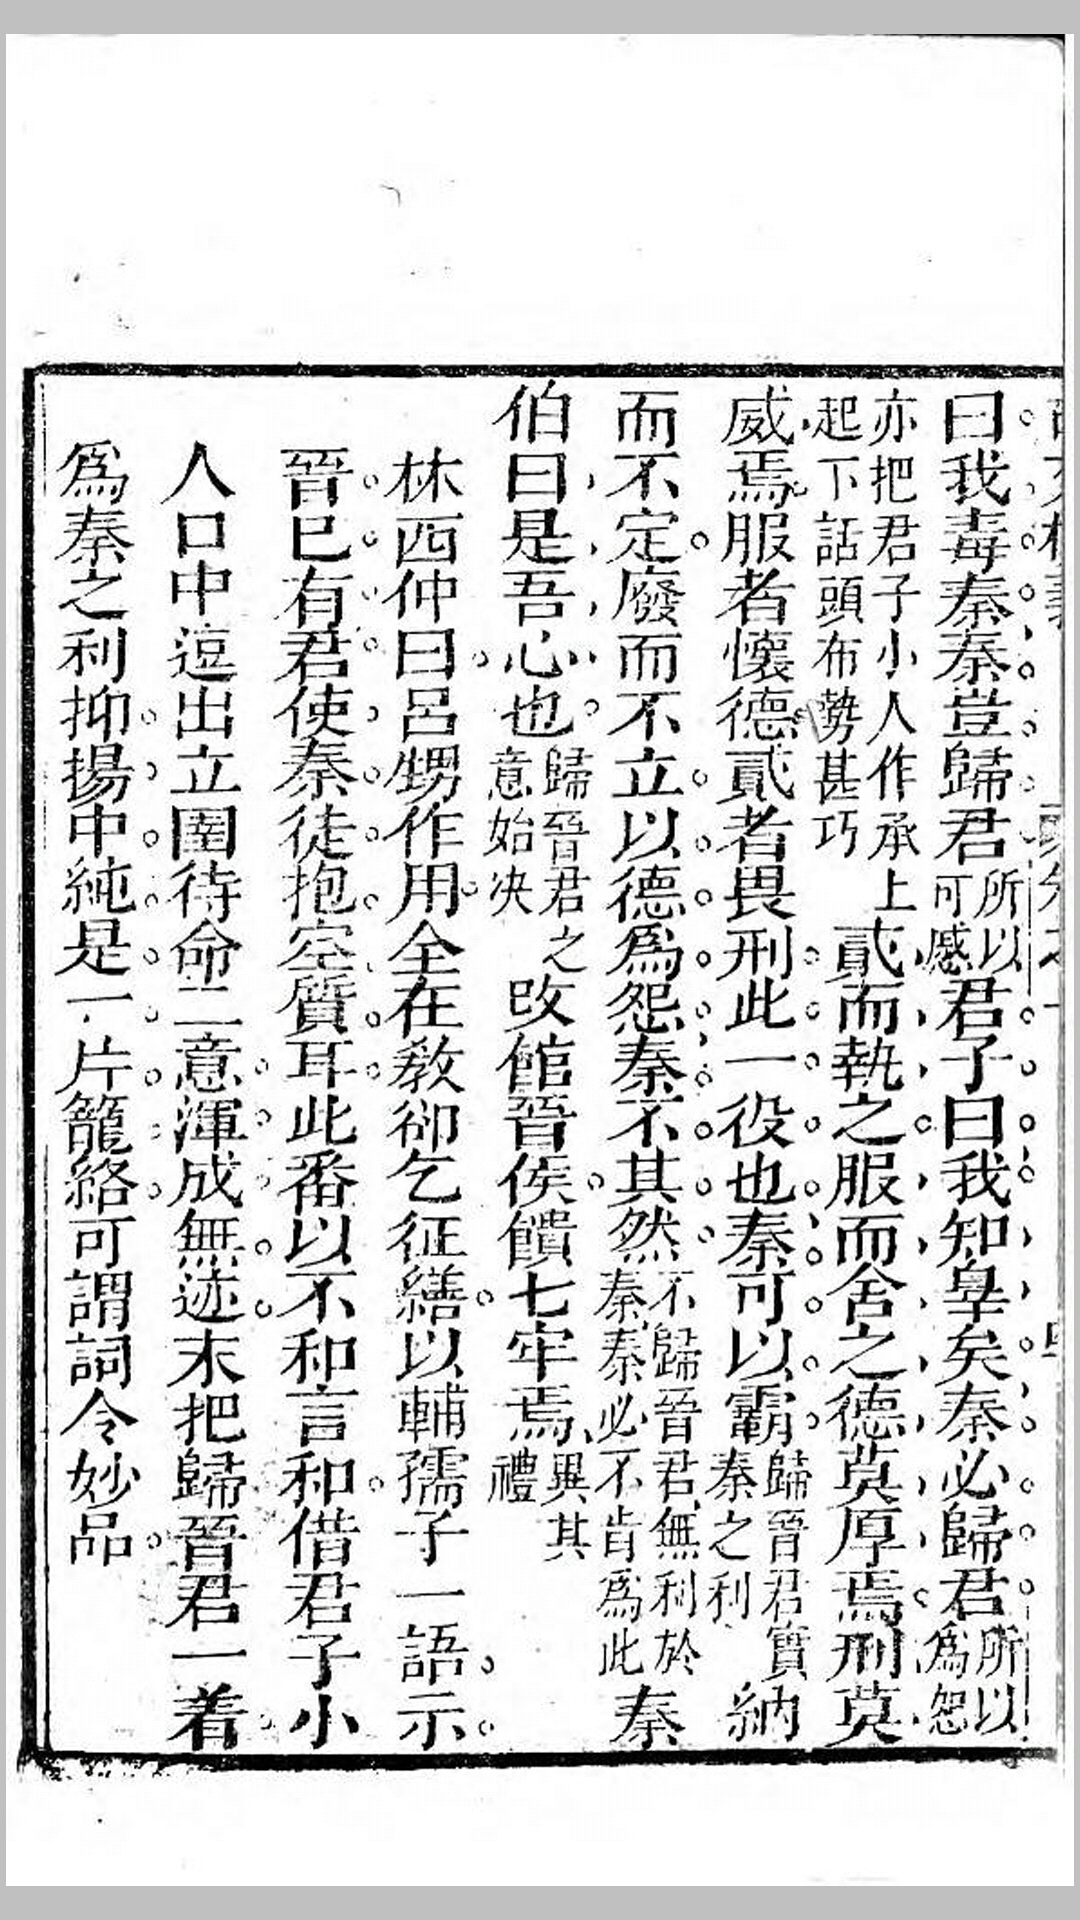 曰我毒秦秦豈歸君所以可慼君子曰我知辠矣秦必歸君所以爲恕
亦把君子小人作承上起下話頭布勢甚巧貳而執之服而舍之德莫厚焉刑莫
威焉服者懷德貳者畏刑此一役也秦可以霸歸晉君實秦之利納
而不定廢而不立以德爲怨秦不其然不歸晉君無利於秦秦必不肯爲此秦
伯曰是吾心也歸晉君之意始决改館晉侯饋七牢焉異其禮
林西仲曰呂甥作用全在敎卻乞征繕以輔孺子一語示
晉巳有君使秦徒抱空質耳此番以不和言和借君子小
人口中逗出立圉待命二意渾成無迹末把歸晉君一着
爲秦之利抑揚中純是一片籠絡可謂詞令妙品